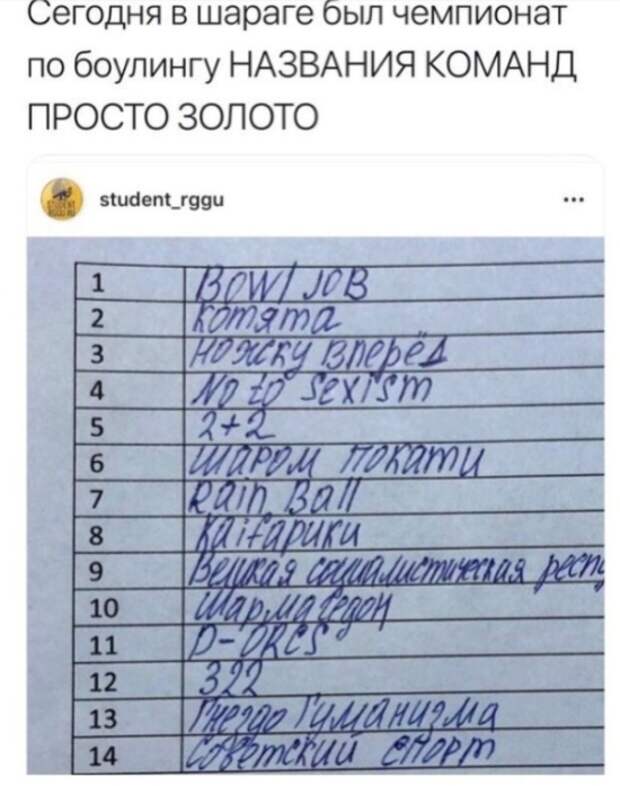 Сегодня в шараге был чемпионат
по боулингу НАЗВАНИЯ КОМАНД
ПРОСТО ЗОЛОТО
student_rggu
1 BOWl JOB
2 Котята
3 Ножку вперёд
4 No to sexism
5 2+2
6 Шаром покати
7 Rain Ball
8 Kaifарики
9 социалистическая респ
10 Шармагедон
11 D-ORCS
12 322
13 Гнездо Гуманизма
14 Советский спорт